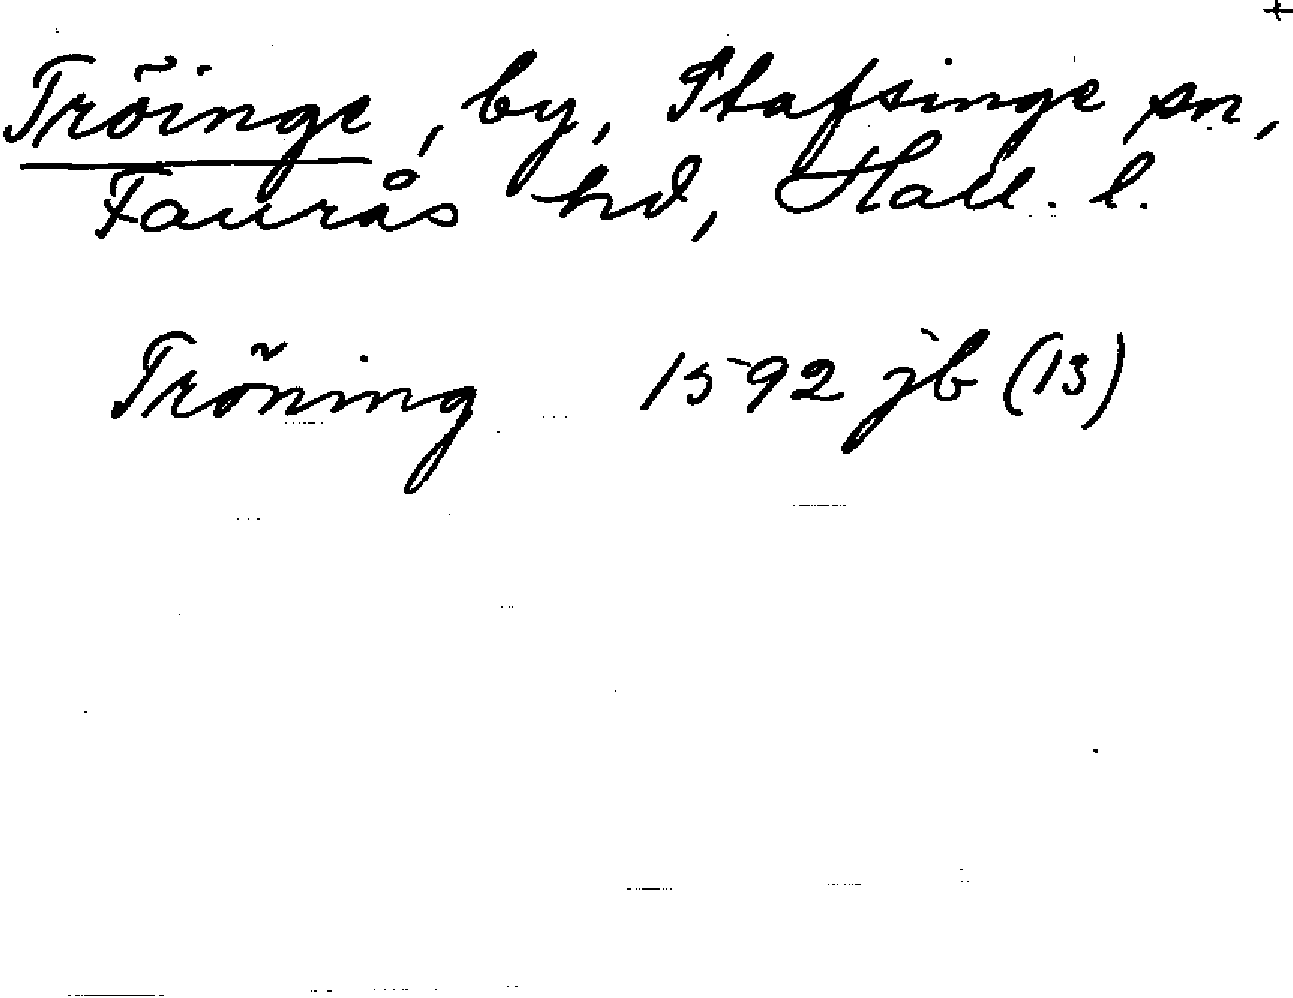 +
Tröinge, by, Stafsinge sn,
Faurås hd, Hall. l.
Tröning 1592 jb (13)